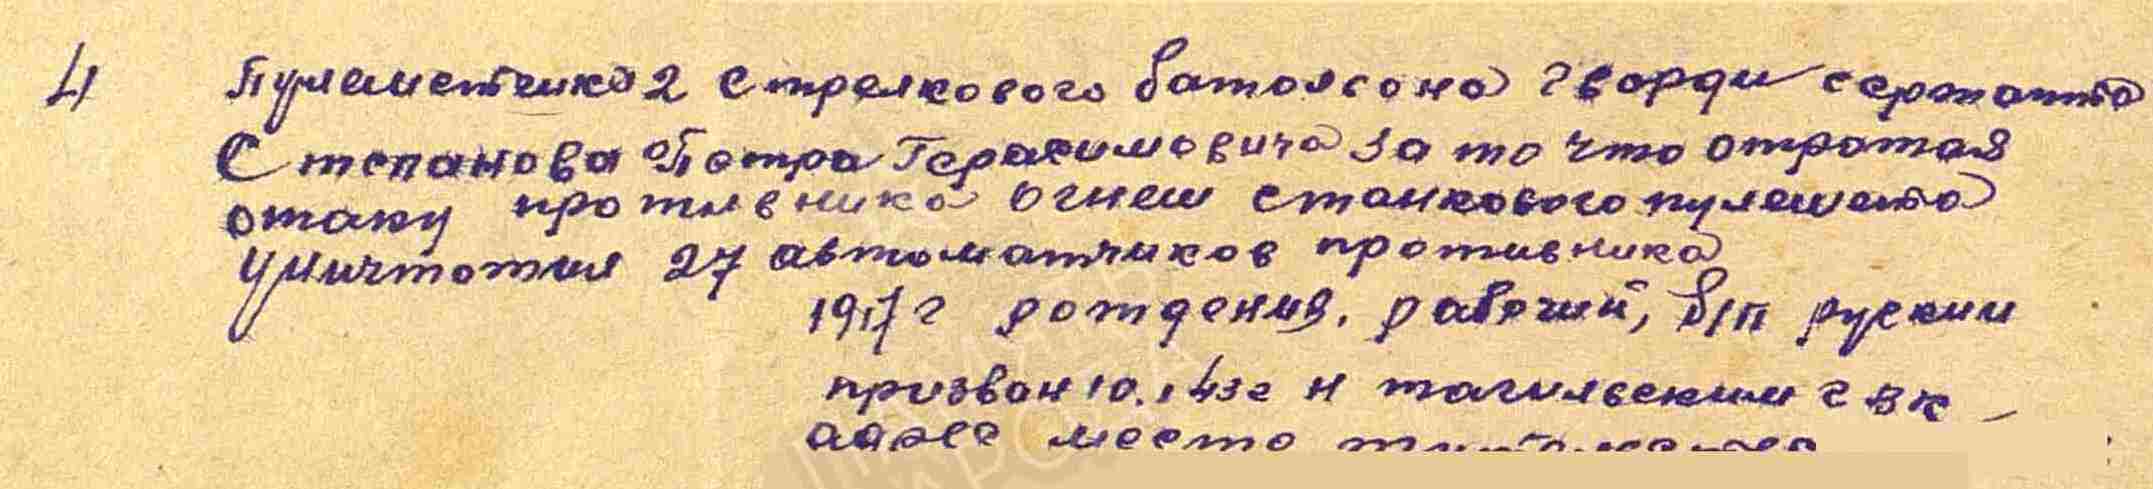 4 Пулеметчика 2 стрелкового батальона гварди сержанта
Степанова Петра Герасимовича за то что отражая
атаку противника огнем станкового пулемета
уничтожил 27 автоматчиков противника
1917 г рождения, рабочий, б/п руский
призван 10.1.43г Н тагильским ГВК -
адрес место жительства